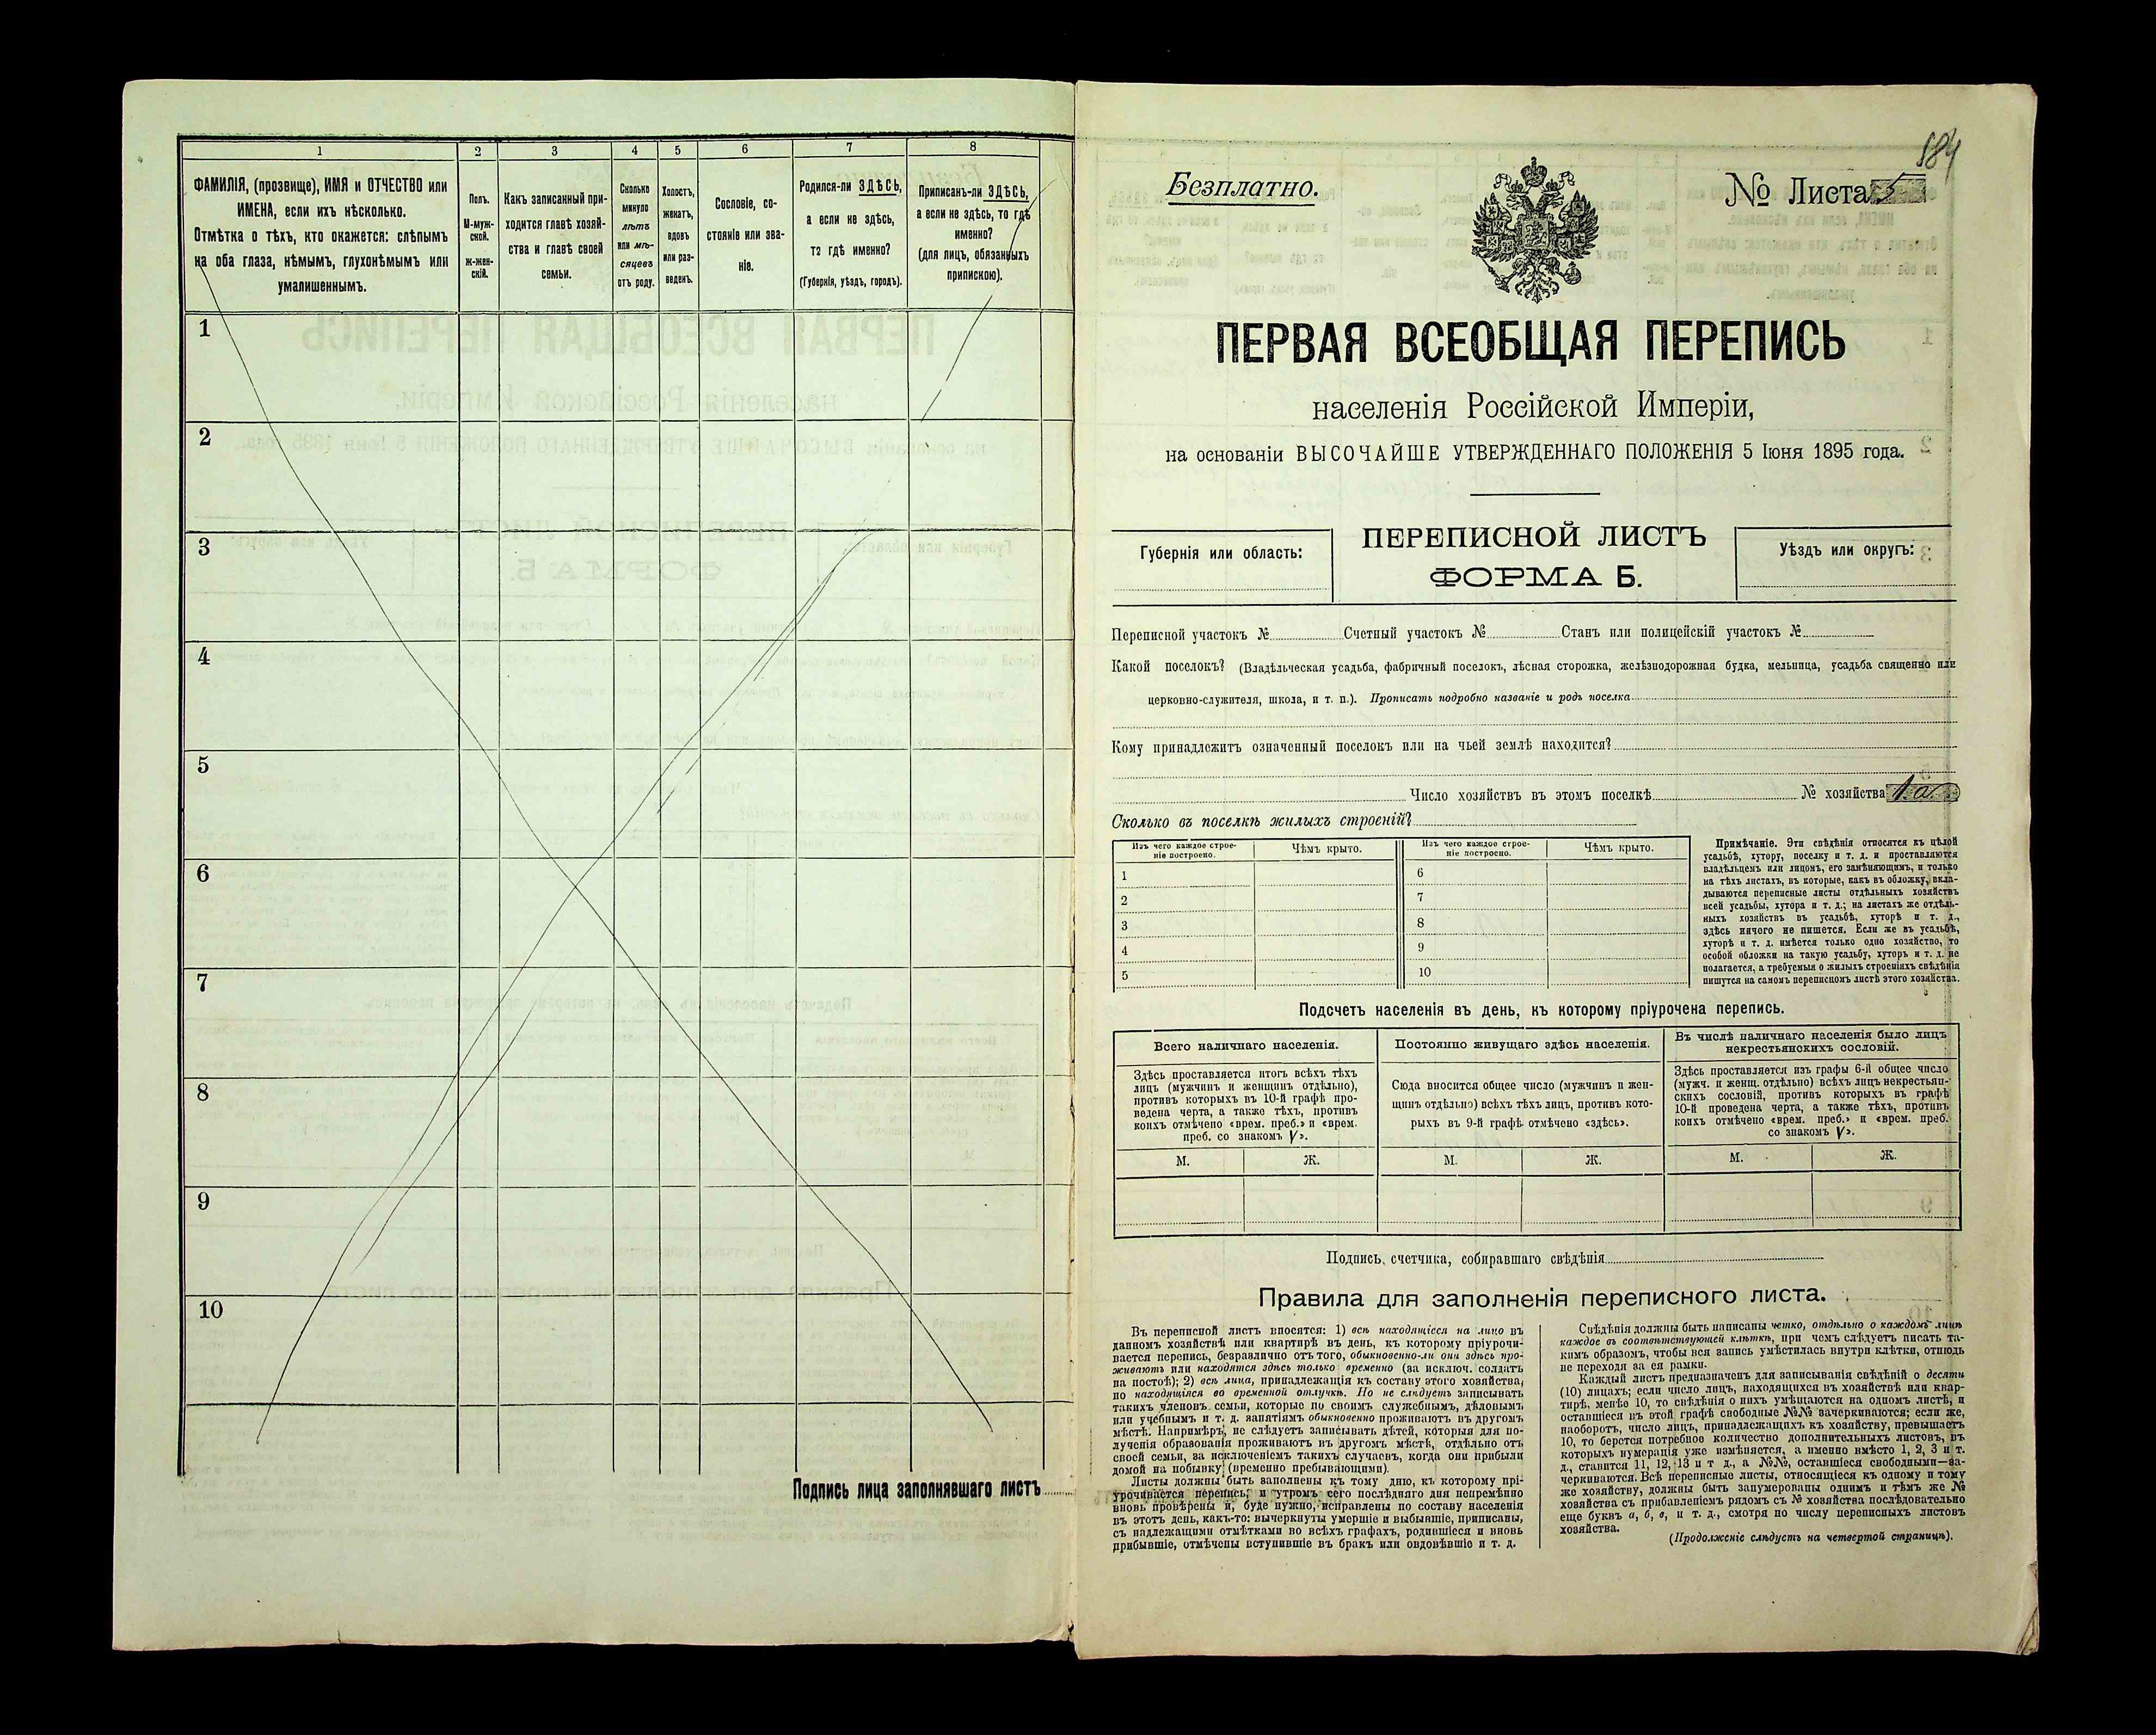 1 2 3 4 5 6 7 8
ФАМИЛІЯ, (прозвище), ИМЯ и ОТЧЕСТВО или
ИМЕНА, если ихъ нѣсколько.
Отмѣтка о тѣхъ, кто окажется: слѣпымъ
на оба глаза, нѣмымъ, глухонѣмымъ или
умалишеннымъ.
Полъ.
М-муж-
ской.
Ж-жен-
скій.
Какъ записанный при-
ходится главѣ хозяй-
ства и главѣ своей
семьи.
Сколько
минуло
лѣтъ
или мѣ-
сяцевъ
отъ роду.
Холостъ,
женатъ,
вдовъ
или раз-
веденъ.
Сословіе, со-
стояніе или зва-
ніе.
Родился-ли ЗДѢСЬ,
а если не здѣсь,
то гдѣ именно?
(Губернія, уѣздъ, городъ).
Приписанъ-ли ЗДѢСЬ,
а если не здѣсь, то гдѣ
именно?
(для лицъ, обязанныхъ
припискою).
1
2
3
4
5
6
7
8
9
10
Подпись лица заполнявшаго листъ
584
Безплатно.
№ Листа 5
ПЕРВАЯ ВСЕОБЩАЯ ПЕРЕПИСЬ
населенія Россійской Имперіи,
на основаніи ВЫСОЧАЙШЕ УТВЕРЖДЕННАГО ПОЛОЖЕНІЯ 5 Іюня 1895 года.
Губернія или область:
ПЕРЕПИСНОЙ ЛИСТЪ
ФОРМА Б.
Уѣздъ или округъ:
Переписной участокъ № Счетный участокъ № Станъ или полицейскій участокъ №
Какой поселокъ? (Владѣльческая усадьба, фабричный поселокъ, лѣсная сторожка, желѣзнодорожная будка, мельница, усадьба священно или
церковно-служителя, школа, и т. п.). Прописать подробно названіе и родъ поселка
Кому принадлежитъ означенный поселокъ или на чьей землѣ находится?
Число хозяйствъ въ этомъ поселкѣ № хозяйства 1 а
Сколько въ поселкѣ жилыхъ строеній?
Изъ чего каждое строе-
ніе построено.
Чѣмъ крыто.
Изъ чего каждое строе-
ніе построено.
Чѣмъ крыто.
1 6
2 7
3 8
4 9
5 10
Примѣчаніе. Эти свѣдѣнія относятся къ цѣлой
усадьбѣ, хутору, поселку и т. д. и проставляются
владѣльцемъ или лицомъ, его замѣняющимъ, и только
на тѣхъ листахъ, въ которые, какъ въ обложку, вкла-
дываются переписные листы отдѣльныхъ хозяйствъ
всей усадьбы, хутора и т. д.; на листахъ же отдѣль-
ныхъ хозяйствъ въ усадьбѣ, хуторѣ и т. д.,
здѣсь ничего не пишется. Если же въ усадьбѣ,
хуторѣ и т. д. имѣется только одно хозяйство, то
особой обложки на такую усадьбу, хуторъ и т. д. не
полагается, а требуемыя о жилыхъ строеніяхъ свѣдѣнія
пишутся на самомъ переписномъ листѣ этого хозяйства.
Подсчетъ населенія въ день, къ которому пріурочена перепись.
Всего наличнаго населенія.
Здѣсь проставляется итогъ всѣхъ тѣхъ
лицъ (мужчинъ и женщинъ отдѣльно),
противъ которыхъ въ 10-й графѣ про-
ведена черта, а также тѣхъ, противъ
коихъ отмѣчено «врем. преб.» и «врем.
преб. со знакомъ V».
Постоянно живущаго здѣсь населенія.
Сюда вносится общее число (мужчинъ и жен-
щинъ отдѣльно) всѣхъ тѣхъ лицъ, противъ кото-
рыхъ въ 9-й графѣ отмѣчено «здѣсь».
Въ числѣ наличнаго населенія было лицъ
некрестьянскихъ сословій.
Здѣсь проставляется изъ графы 6-й общее число
(мужч. и женщ. отдѣльно) всѣхъ лицъ некрестьян-
скихъ сословій, противъ которыхъ въ графѣ
10-й проведена черта, а также тѣхъ, противъ
коихъ отмѣчено «врем. преб.» и «врем. преб.
со знакомъ V».
М. Ж. М. Ж. М. Ж.
Подпись, счетчика, собиравшаго свѣдѣнія
Правила для заполненія переписного листа.
Въ переписной листъ вносятся: 1) всѣ находящіеся на лицо въ
данномъ хозяйствѣ или квартирѣ въ день, къ которому пріурочи-
вается перепись, безразлично отъ того, обыкновенно-ли они здѣсь про-
живаютъ или находятся здѣсь только временно (за исключ. солдатъ
на постоѣ); 2) всѣ лица, принадлежащія къ составу этого хозяйства,
но находящіяся во временной отлучкѣ. Но не слѣдуетъ записывать
такихъ членовъ семьи, которые по своимъ служебнымъ, дѣловымъ
или учебнымъ и т. д. занятіямъ обыкновенно проживаютъ въ другомъ
мѣстѣ. Напримѣръ, не слѣдуетъ записывать дѣтей, которыя для по-
лученія образованія проживаютъ въ другомъ мѣстѣ, отдѣльно отъ
своей семьи, за исключеніемъ такихъ случаевъ, когда они прибыли
домой на побывку (временно пребывающими).
Листы должны быть заполнены къ тому дню, къ которому прі-
урочивается перепись, и утромъ сего послѣдняго дня непремѣнно
вновь провѣрены и, буде нужно, исправлены по составу населенія
въ этотъ день, какъ-то: вычеркнуты умершіе и выбывшіе, приписаны,
съ надлежащими отмѣтками во всѣхъ графахъ, родившіеся и вновь
прибывшіе, отмѣчены вступившіе въ бракъ или овдовѣвшіе и т. д.
Свѣдѣнія должны быть написаны четко, отдѣльно о каждомъ лицѣ
каждое въ соотвѣтствующей клѣткѣ, при чемъ слѣдуетъ писать та-
кимъ образомъ, чтобы вся запись умѣстилась внутри клѣтки, отнюдь
не переходя за ея рамки.
Каждый листъ предназначенъ для записыванія свѣдѣній о десяти
(10) лицахъ; если число лицъ, находящихся въ хозяйствѣ или квар-
тирѣ, менѣе 10, то свѣдѣнія о нихъ умѣщаются на одномъ листѣ, и
оставшіеся въ этой графѣ свободные №№ зачеркиваются; если же,
наоборотъ, число лицъ, принадлежащихъ къ хозяйству, превышаетъ
10, то берется потребное количество дополнительныхъ листовъ, въ
которыхъ нумерація уже измѣняется, а именно вмѣсто 1, 2, 3 и т.
д., ставится 11, 12, 13 и т д., а №№, оставшіеся свободными—за-
черкиваются. Всѣ переписные листы, относящіеся къ одному и тому
же хозяйству, должны быть занумерованы однимъ и тѣмъ же №
хозяйства съ прибавленіемъ рядомъ съ № хозяйства послѣдовательно
еще буквъ а, б, в, и т. д., смотря по числу переписныхъ листовъ
хозяйства.
(Продолженіе слѣдуетъ на четвертой страницѣ).